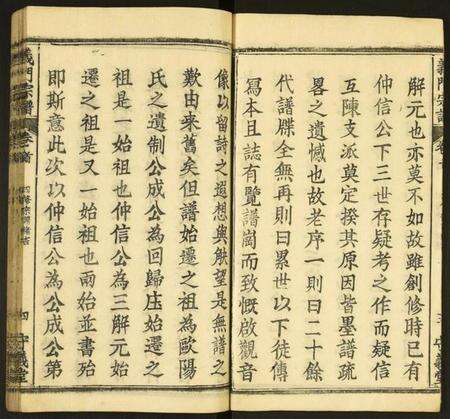 解元也亦莫不如故雖創修時已有
仲信公下三世存疑考之作而疑信
互陳支派莫定揆其原因皆墨譜疏
畧之遺憾也故老序一則曰二十餘
代譜牒全無再則曰累世以下徒傳
寫本且誌有覽譜崗而致慨啟觀音
像以留詩之遐想輿觖望是無譜之
歎由來舊矣但譜始遷之祖為歐陽
氏之遺制公成公為回歸庄始遷之
祖是一始祖也仲信公為三解元始
遷之祖是又一始祖也兩始並書殆
即斯意此次以仲信公為公成公第
義門宗譜
卷首
四